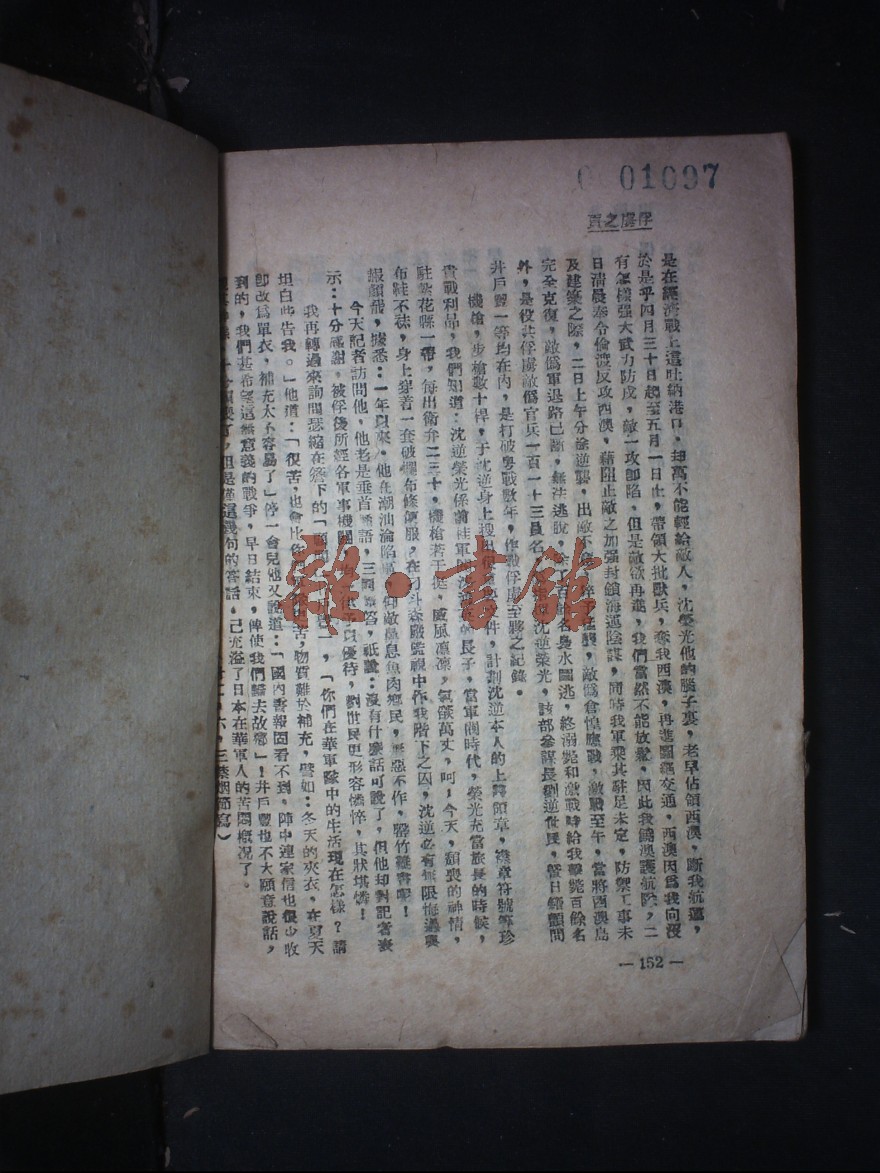 01097
俘虜之頁
是在經濟戰上這吐納港口，却萬不能輕給敵人，沈榮光他的腦子裏，老早佔領西澳，斷我航運，
於是乎四月三十日起至五月一日止，帶領大批獸兵，奪我西澳，再進圖饒交通，西澳因爲我向沒
有怎樣强大武力防戍，敵一攻卽陷，但是敵欲再進，我們當然不能放鬆，因此我饒澳護航隊，二
日清晨奉令偷渡反攻西澳，藉阻止敵之加强封鎖海運陰謀，同時我軍乘其駐足未定，防禦工事未
及建築之際，二日上午分途進襲，出敵不 敵僞倉惶應戰，激戰至午，當將西澳島
完全克復，敵僞軍退路已斷，無法逃脫， 名曳水圖逃，終溺斃和激戰時給我擊斃百餘名
外，是役共俘虜敵僞官兵一百一十三員名 沈逆榮光，該部參謀長劉逆世民，暨日籍顧問
井戶豐一等均在內，是打破粵戰數年，作戰俘虜至夥之紀錄。
機槍，步槍數十桿，于沈逆身上搜出 件，計劃沈逆本人的上將領章，襟章符號等珍
貴戰利品，我們知道：沈逆榮光係前桂軍 長子，當軍閥時代，榮光充當旅長的時候，
駐紮花縣一帶，每出衛弁二三十，機槍若干 威風凜凜，氣燄萬丈，呵！今天，頹喪的神情，
布鞋不襪，身上穿着一套破 布條便服，在刁斗森嚴監視中作我階下之囚，沈逆必有無限悔過與
報顏哉，據悉：一年以來，他在潮汕淪陷 仰敵鼻息魚肉鄉民，無惡不作，罄竹難書呢！
今天記者訪問他，他老是垂首 語，三問 答，祇說：沒有什麽話可說了，但他却對記者表
示：十分感謝，被俘後所經各軍事機關， 予以優待，劉世民更形容憔悴，其狀堪憐！
我再轉過來詢問瑟縮在簷下的「顧問 」，「你們在華軍隊中的生活現在怎樣？請
坦白些告我。」他道：「很苦，也會比 苦，物質難於補充，譬如：冬天的夾衣，在夏天
卽改爲單衣，補充太不容易了」停一會兒他又說道：「國內書報固看不到，陣中連家信也很少收
到的，我們甚希望這無意義的戰爭，早日結束，俾使我們歸去故鄉」！井戶豐也不大願意說話，
但是僅這幾句的答話，已充溢了日本在華軍人的苦悶概況了。
— 152 —
雜·書館